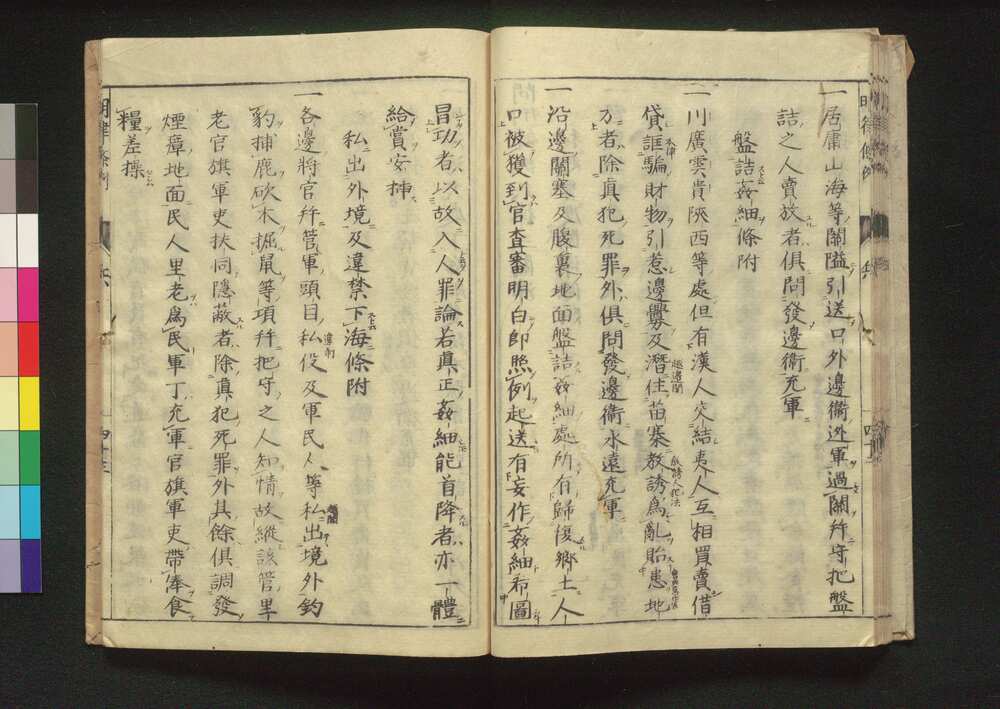 一居庸山海等關隘引送口外邊衞逃軍過關幷守把盤
詰之人賣放者俱問發邊衞充軍
盤詰姦細條附
一川廣雲貴陝西等處但有漢人交結夷人互相買賣借
貸誆騙財物引惹邊釁及潛住苗寨教誘爲亂貽患地
方者除眞犯死罪外俱問發邊衞永遠充軍
一沿邊關塞及腹裏地面盤詰姦細處所有歸復鄉土人
口被獲到官查審明白即照例起送有妄作姦細希圖
冒功者以故入人罪論若眞正姦細能首降者亦一體
給賞安揷
私出外境及違禁下海條附
一各邊將官幷管軍頭目私役及軍民人等私出境外釣
豹捕鹿砍木掘鼠等項幷把守之人知情故縱該管里
老官旗軍吏扶同隱蔽者除眞犯死罪外其餘俱調發
煙瘴地面民人里老爲民軍丁充軍官旗軍吏帶俸食
糧差操